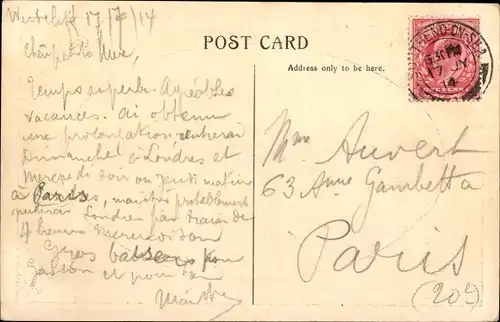 Westcliff 17/7/14
Chère petite Mère,
Temps superbe. Agréables
vacances. Ai obtenu
une prolongation. rentrerai
Dimanche à Londres et
Mercredi soir ou Jeudi matin
à Paris, probablement
Londres par train de
4 heures Mercredi
Gros baisers pour
et pour
POST CARD
Address only to be here.
SOUTHEND-ON-SEA
5.30 PM
17 JY
14
Mme Auvert
63 Ave Gambetta
Paris
(20e)